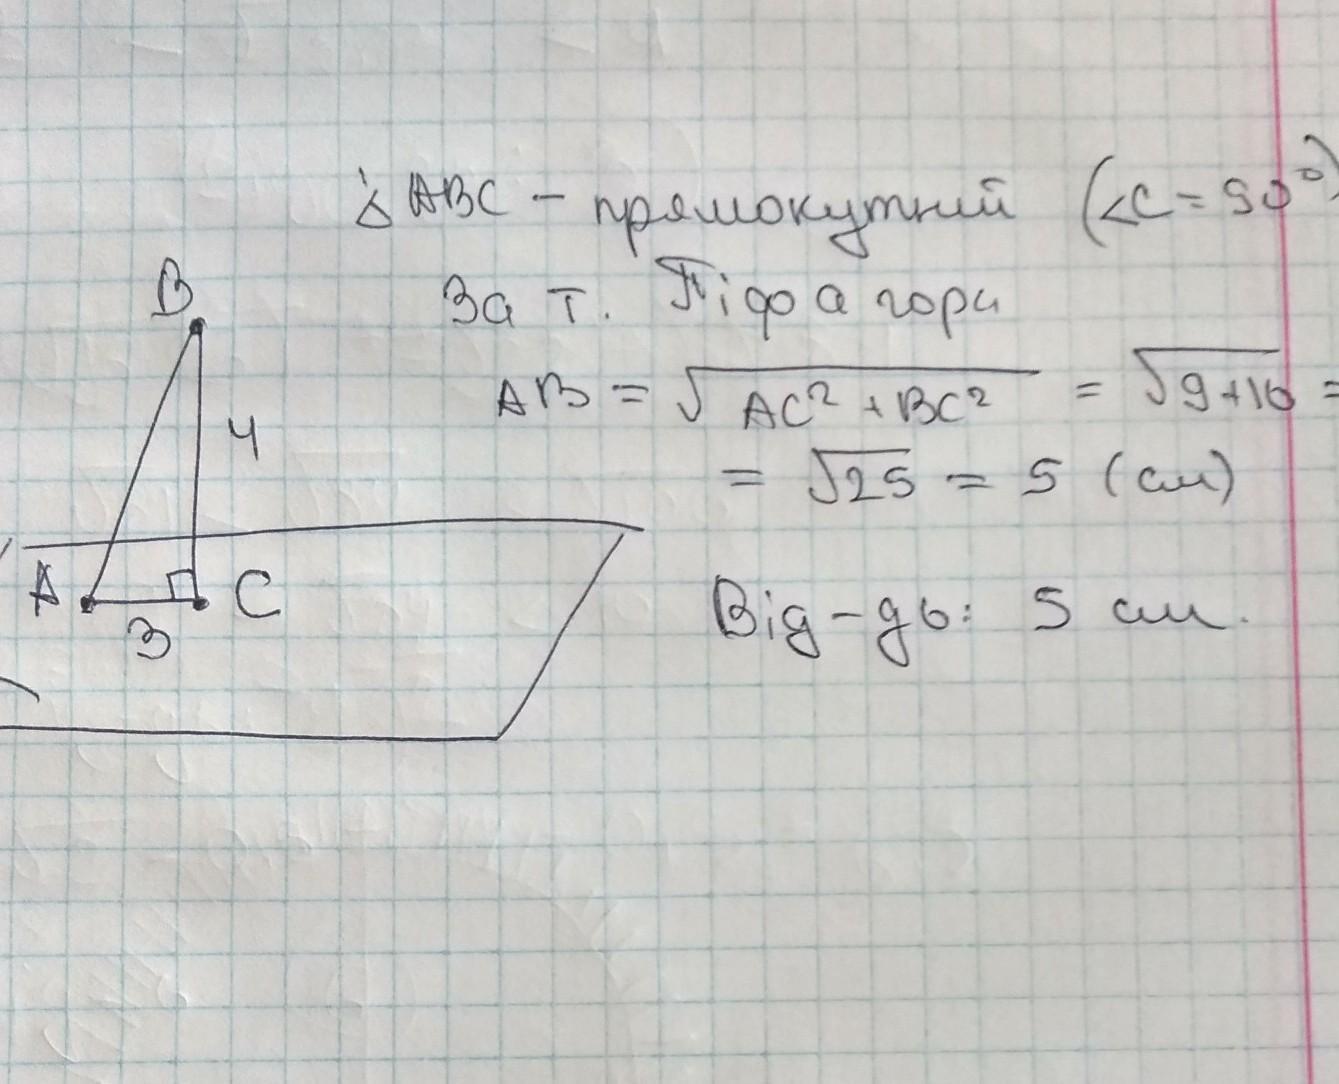 △ABC – прямокутний (∠C = 90°)
За т. Піфагора
AB = √AC² + BC² = √9+16 =
= √25 = 5 (см)
Від-дь: 5 см.
B
4
A
C
3